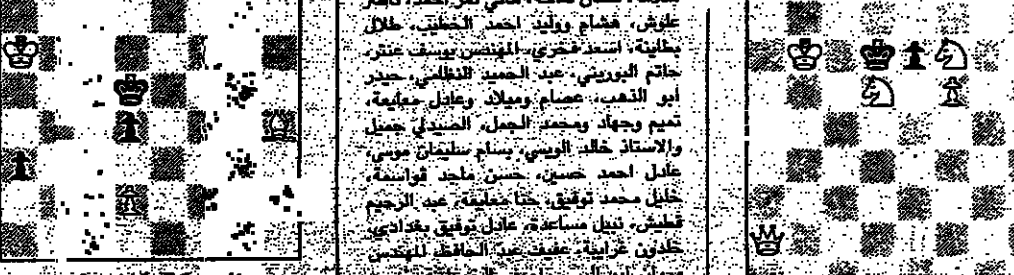 علوش، هشام ووليد احمد الخطيب، طلال
بطاينة، اسعد فخري، المهندس يوسف عنتر،
حاتم البوريني، عبد الحميد النظامي، حيدر
أبو الذهب، عصام وميلاد وعادل معايعة،
تميم وجهاد ومحمد الجمل، الصيدلي جميل
والاستاذ خالد الويسي، بسام سليمان موسى،
عادل احمد حسين، حسن ماجد قواسمة،
خليل محمد توفيق، حنا معايعة، عبد الرحيم
قطيش، نبيل مساعدة، عادل توفيق بغدادي،
خلدون غرايبة، عفيف عبد الحافظ، المهندس